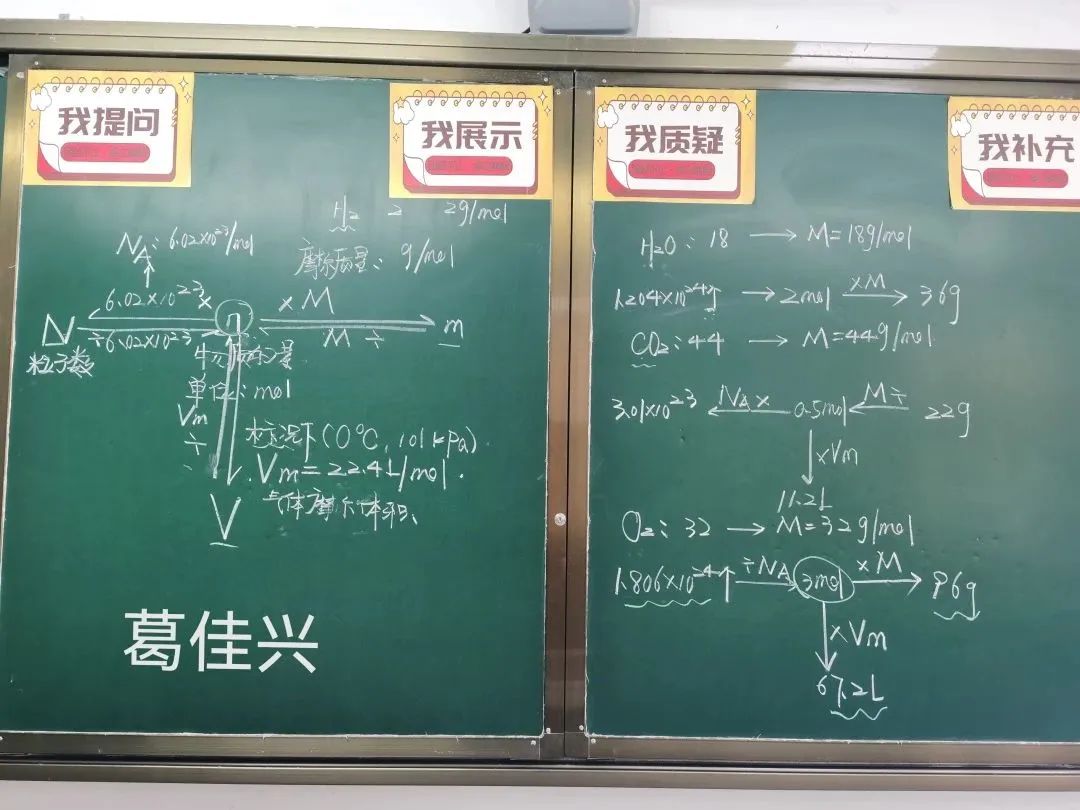 我提问
我展示
我质疑
我补充
H₂ 2 2g/mol
NA: 6.02×10²³/mol
摩尔质量: g/mol
6.02×10²³ ×
× M
N n m
÷6.02×10²³
M ÷
粒子数
物质的量
单位: mol
Vm
÷
标况下(0℃, 101kPa)
Vm=22.4L/mol.
V
气体摩尔体积
葛佳兴
H₂O: 18 → M=18g/mol
1.204×10²⁴个 → 2mol ×M→ 36g
CO₂: 44 → M=44g/mol
3.01×10²³ ←NA× 0.5mol ←M÷ 22g
↓×Vm
11.2L
O₂: 32 → M=32g/mol
1.806×10²⁴个 ÷NA→ 3mol ×M→ 96g
↓×Vm
67.2L